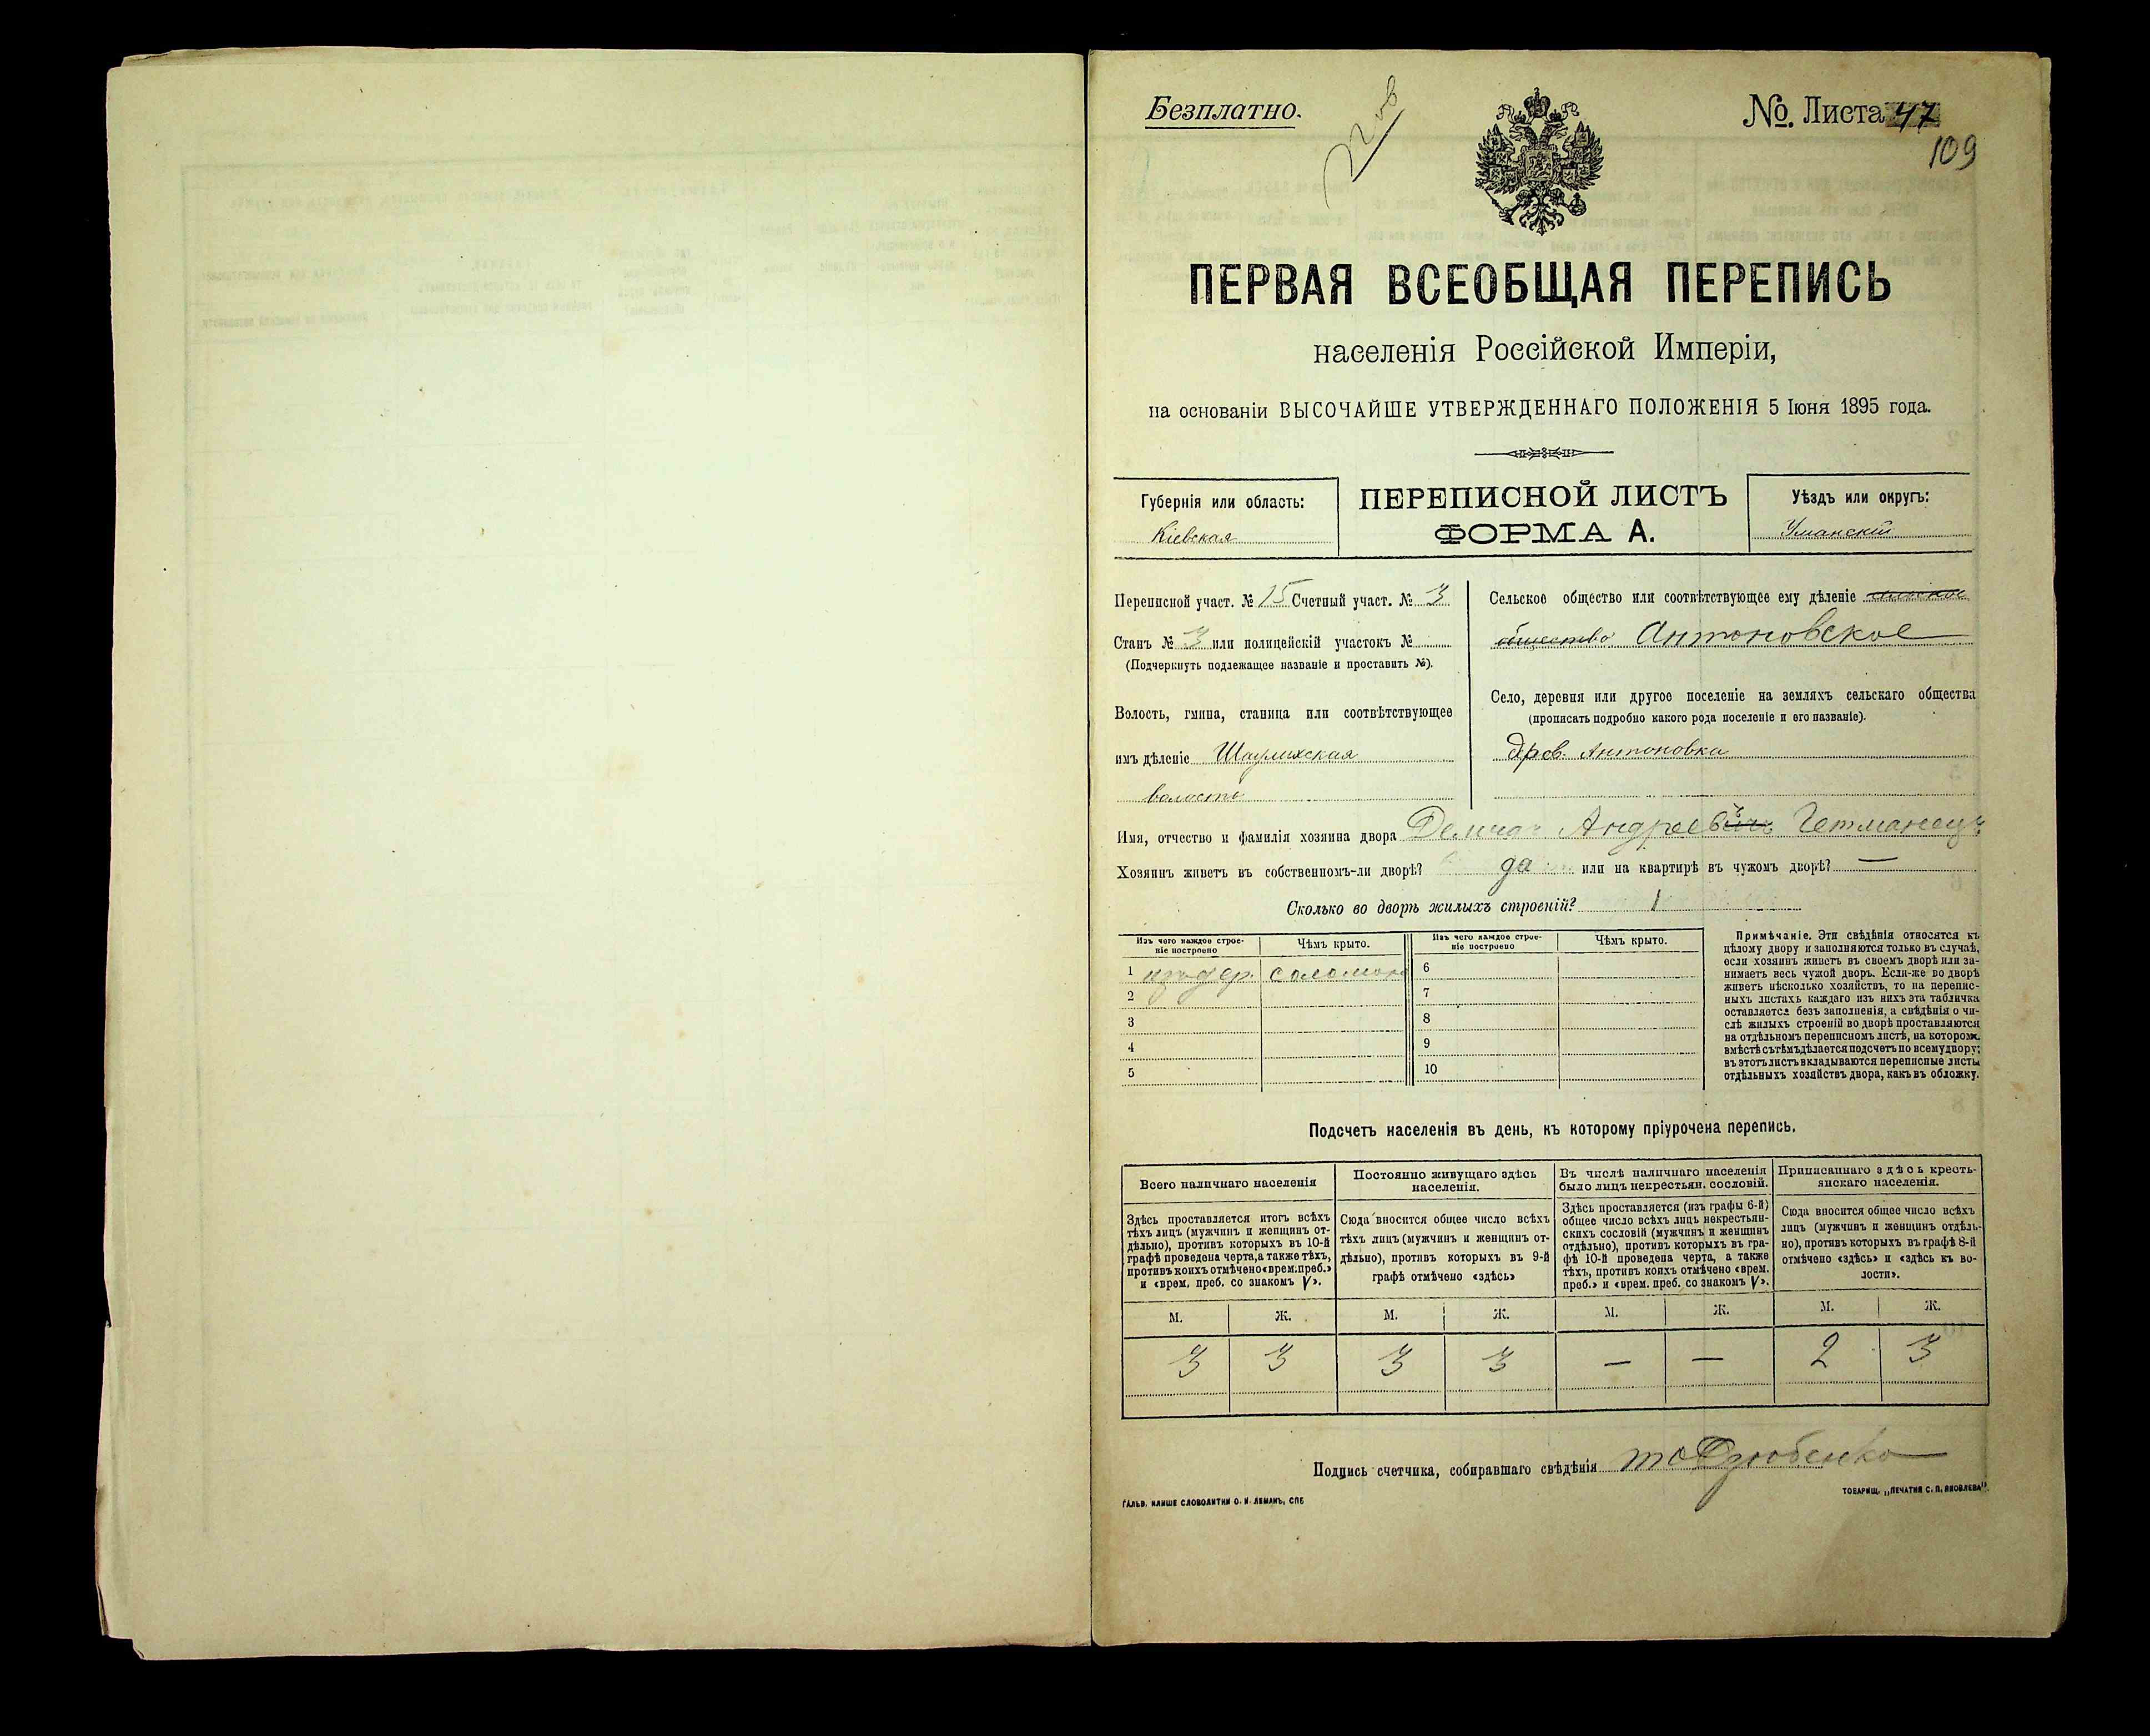 Безплатно.
№. Листа 47
109
ПЕРВАЯ ВСЕОБЩАЯ ПЕРЕПИСЬ
населенія Россійской Имперіи,
на основаніи ВЫСОЧАЙШЕ УТВЕРЖДЕННАГО ПОЛОЖЕНІЯ 5 Іюня 1895 года.
Губернія или область:
Кіевская
ПЕРЕПИСНОЙ ЛИСТЪ
ФОРМА А.
Уѣздъ или округъ:
Уманскій
Переписной участ. № 15 Счетный участ. № 3
Станъ № 3 или полицейскій участокъ №
(Подчеркнуть подлежащее названіе и проставить №).
Волость, гмина, станица или соотвѣтствующее
имъ дѣленіе Шаулихская
волость
Сельское общество или соотвѣтствующее ему дѣленіе сельское
общество Антоновское
Село, деревня или другое поселеніе на земляхъ сельскаго общества
(прописать подробно какого рода поселеніе и его названіе).
древ. Антоновка
Имя, отчество и фамилія хозяина двора Андреевичъ Гетманецъ
Хозяинъ живетъ въ собственномъ-ли дворѣ? да или на квартирѣ въ чужомъ дворѣ? —
Сколько во дворѣ жилыхъ строеній? 1
Изъ чего каждое строе-
ніе построено
Чѣмъ крыто.
Изъ чего каждое строе-
ніе построено
Чѣмъ крыто.
1 соломою 6
2 7
3 8
4 9
5 10
Примѣчаніе. Эти свѣдѣнія относятся къ
цѣлому двору и заполняются только въ случаѣ,
если хозяинъ живетъ въ своемъ дворѣ или за-
нимаетъ весь чужой дворъ. Если-же во дворѣ
живетъ нѣсколько хозяйствъ, то на перепис-
ныхъ листахъ каждаго изъ нихъ эта табличка
оставляется безъ заполненія, а свѣдѣнія о чи-
слѣ жилыхъ строеній во дворѣ проставляются
на отдѣльномъ переписномъ листѣ, на которомъ
вмѣстѣ съ тѣмъ дѣлается подсчетъ по всему двору;
въ этотъ листъ вкладываются переписные листы
отдѣльныхъ хозяйствъ двора, какъ въ обложку.
Подсчетъ населенія въ день, къ которому пріурочена перепись.
Всего наличнаго населенія
Здѣсь проставляется итогъ всѣхъ
тѣхъ лицъ (мужчинъ и женщинъ от-
дѣльно), противъ которыхъ въ 10-й
графѣ проведена черта, а также тѣхъ,
противъ коихъ отмѣчено «врем. преб.»
и «врем. преб. со знакомъ V».
Постоянно живущаго здѣсь
населенія.
Сюда вносится общее число всѣхъ
тѣхъ лицъ (мужчинъ и женщинъ от-
дѣльно), противъ которыхъ въ 9-й
графѣ отмѣчено «здѣсь»
Въ числѣ наличнаго населенія
было лицъ некрестьян. сословій.
Здѣсь проставляется (изъ графы 6-й)
общее число всѣхъ лицъ некрестьян-
скихъ сословій (мужчинъ и женщинъ
отдѣльно), противъ которыхъ въ гра-
фѣ 10-й проведена черта, а также
тѣхъ, противъ коихъ отмѣчено «врем.
преб.» и «врем. преб. со знакомъ V».
Приписаннаго здѣсь кресть-
янскаго населенія.
Сюда вносится общее число всѣхъ
лицъ (мужчинъ и женщинъ отдѣль-
но), противъ которыхъ въ графѣ 8-й
отмѣчено «здѣсь» и «здѣсь къ во-
лости».
М. Ж. М. Ж. М. Ж. М. Ж.
3 3 3 3 — — 2 3
Подпись счетчика, собиравшаго свѣдѣнія
ГАЛЬВ. КЛИШЕ СЛОВОЛИТНИ О. И. ЛЕМАНЪ, СПБ
ТОВАРИЩ. „ПЕЧАТНЯ С. П. ЯКОВЛЕВА".